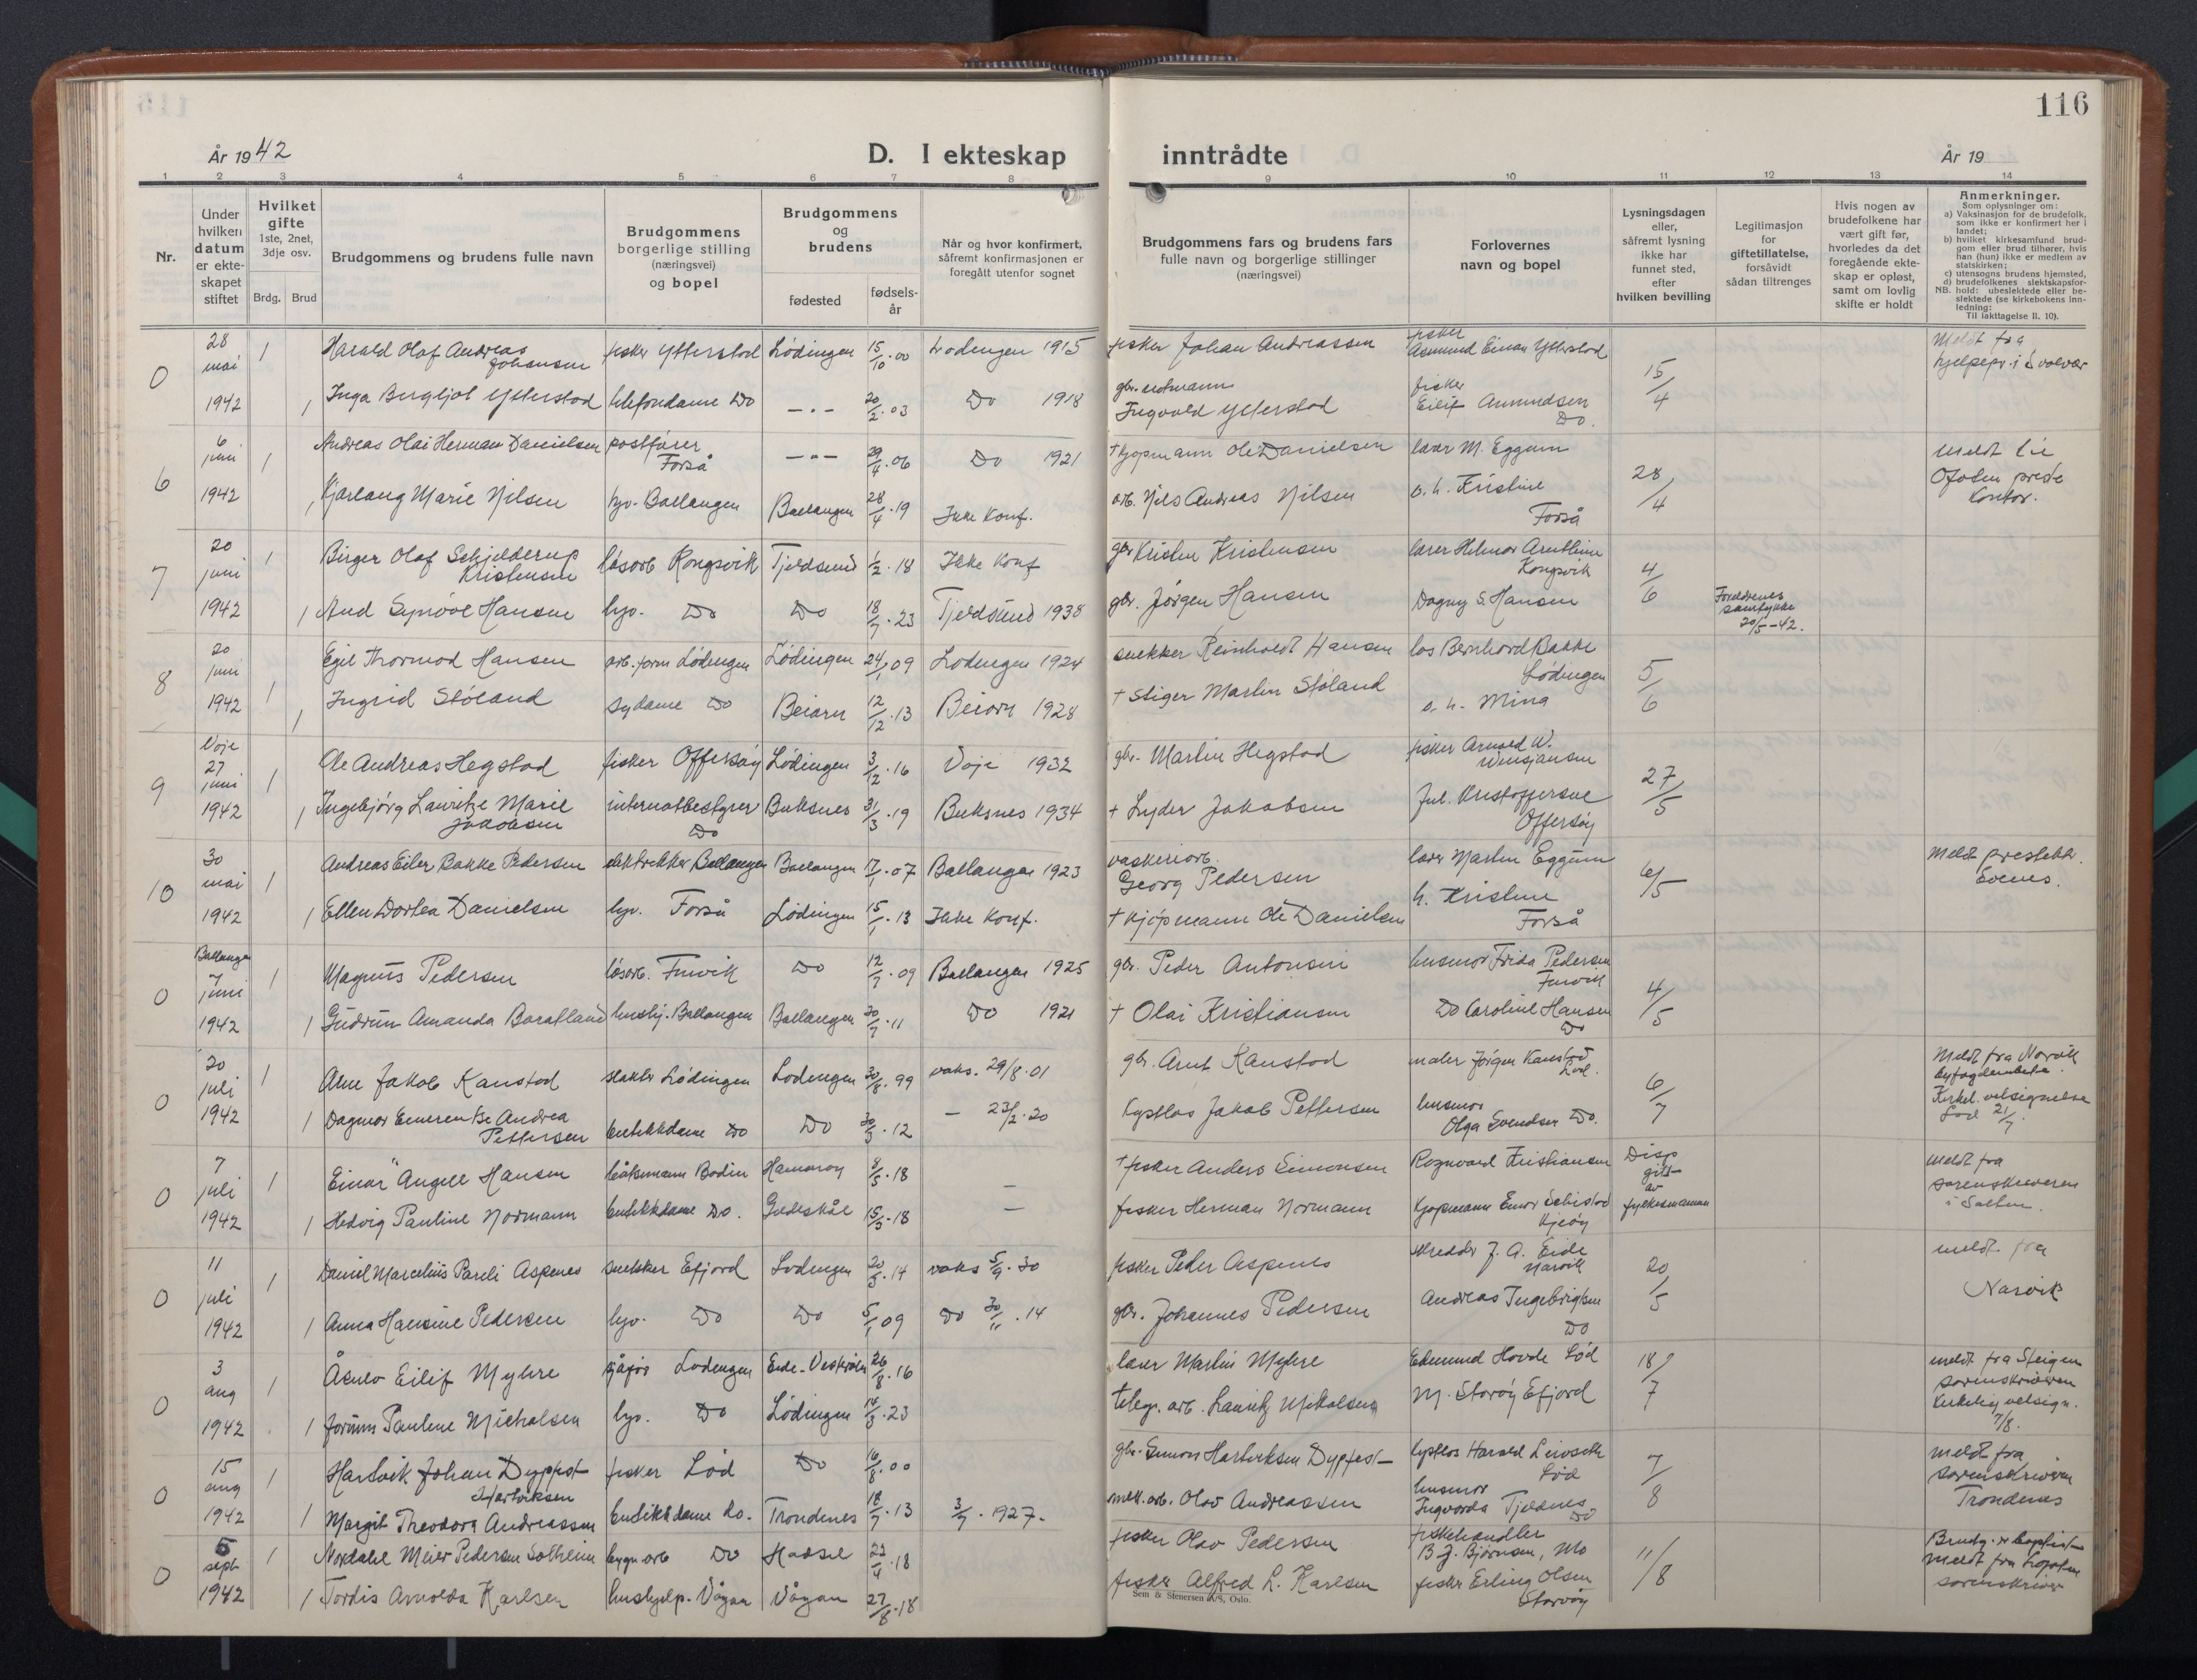 116
År 1942
D. I ekteskap inntrådte
År 19
1 2 3 4 5 6 7 8 9 10 11 12 13 14
Nr.
Under hvilken datum er ekteskapet stiftet
Hvilket gifte
1ste, 2net, 3dje osv.
Brdg. Brud
Brudgommens og brudens fulle navn
Brudgommens borgerlige stilling (næringsvei) og bopel
Brudgommens og brudens
fødested
fødselsår
Når og hvor konfirmert, såfremt konfirmasjonen er foregått utenfor sognet
Brudgommens fars og brudens fars fulle navn og borgerlige stillinger (næringsvei)
Forlovernes navn og bopel
Lysningsdagen eller, såfremt lysning ikke har funnet sted, efter hvilken bevilling
Legitimasjon for giftetillatelse, forsåvidt sådan tiltrenges
Hvis nogen av brudefolkene har vært gift før, hvorledes da det foregående ekteskap er opløst, samt om lovlig skifte er holdt
Anmerkninger.
Som oplysninger om:
a) Vaksinasjon for de brudefolk, som ikke er konfirmert her i landet;
b) hvilket kirkesamfund brudgom eller brud tilhører, hvis han (hun) ikke er medlem av statskirken;
c) utensogns brudens hjemsted,
d) brudefolkenes slektskapsforhold: ubeslektede eller beslektede (se kirkebokens innledning:
NB. Til iakttagelse II. 10).
0 28 mai 1942 1 Harald Olaf Andreas Johansen fisker Ytterstad Lødingen 15/10.00 Lødingen 1915 fisker Johan Andreassen fisker Asmund Einar Ytterstad 15/4 Meldt fra hjelpepr. i Svolvær
1 Inga Bergljot Ytterstad telefondame Do —"— 20/2.03 Do 1918 gbr. Ingvald Ytterstad fisker Eilif Amundsen Do.
6 6 juni 1942 1 Andreas Olai Herman Danielsen postfører Forså —"— 29/4.06 Do 1921 † kjøpmann Ole Danielsen lærer M. Eggum 28/4 meldt til Ofoten preste kontor.
1 Kjærlaug Marie Nilsen hjv. Ballangen Ballangen 28/4.19 Ikke konf. arb. Nils Andreas Nilsen o. h. Kristine Forså
7 20 juni 1942 1 Birger Olaf Schjelderup Kristensen løsarb Kongsvik Tjeldsund 1/2.18 Ikke konf gbr Kristen Kristensen lærer Helmer Arntsen Kongsvik 4/6
1 Aud Synnøve Hansen hjv. Do Do 18/7.23 Tjeldsund 1938 gbr. Jørgen Hansen Dagny S. Hansen Foreldrenes samtykke 20/5-42.
8 20 juni 1942 1 Egil Thormod Hansen arb.form Lødingen Lødingen 24/1 09 Lødingen 1924 snekker Reinholdt Hansen los Bernhard Bakke Lødingen 5/6
1 Ingrid Støland sydame Do Beiarn 12/12.13 Beiarn 1928 † stiger Martin Støland o. h. Mina
9 Voje 27 juni 1942 1 Ole Andreas Hegstad fisker Offersøy Lødingen 3/12.16 Voje 1932 gbr. Martin Hegstad fisker Arnold W. 27/5
1 Ingebjørg Lauritze Marie Jakobsen internatbestyrer Do Buksnes 31/3.19 Buksnes 1934 † Lyder Jakobsen Jul. Kristoffersen Offersøy
10 30 mai 1942 1 Andreas Eiler Bakke Pedersen Ballangen Ballangen 17/1.07 Ballangen 1923 vaskeriarb. Georg Pedersen lærer Martin Eggum 6/5 Meldt prestektr. Evenes.
1 Ellen Dortea Danielsen hjv. Forså Lødingen 15/1.13 Ikke konf. † kjøpmann Ole Danielsen h. Kristine Forså
0 Ballangen 7 juni 1942 1 Magnus Pedersen løsarb. Do 12/7.09 Ballangen 1925 gbr. Peder Antonsen husmor Frida Pedersen 4/5
1 Gudrun Amanda Baratland hushj. Ballangen Ballangen 30/7.11 Do 1921 † Olai Kristiansen Do Caroline Hansen Do
0 20 juli 1942 1 Alne Jakob Kanstad slakter Lødingen Lødingen 30/8.99 vaks. 29/8.01 gbr. Arnt Kanstad maler Jørgen Kanstad Lød. 6/7 Meldt fra Narvik byfogdembete. Kirkel. velsignelse Lød 21/7.
1 Dagmar Emerentse Andrea Pettersen butikkdame Do Do 30/3.12 — 23/2.20 kystlos Jakob Pettersen husmor Olga Svendsen Do.
0 7 juli 1942 1 Einar Angell Hansen båtsmann Bodin Hamarøy 8/5.18 — † fisker Anders Simonsen Ragnvard Kristiansen Disp gitt av fylkesmannen meldt fra sorenskriveren i Salten.
1 Hedvig Pauline Normann butikkdame Do. Gildeskål 15/5.18 — fisker Herman Normann kjøpmann Einar Seb Kjeøy
0 11 juli 1942 1 Daniel Marcelius Pareli Aspenes snekker Efjord Lødingen 20/3.14 vaks 5/9.30 fisker Peder Aspenes skredder J. A. Eide Narvik 20/5 meldt fra Narvik
1 Anna Hansine Pedersen hjv. Do Do 5/1 09 Do 30/11.14 gbr. Johannes Pedersen Andreas Ingebrigtsen Do
0 3 aug 1942 1 Åsulv Eilif Myhre sjåfør Lødingen Eide-Vesterålen 26/8.16 lærer Martin Myhre Edmund Hovde Lød 18/7 meldt fra Steigen sorenskriveren Kirkelig velsign. 7/8.
1 Jorunn Pauline Nicholsen hjv. Do Lødingen 14/3.23 telegr. arb. Lauritz Nikolsen M. Storøy Efjord
0 15 aug 1942 1 Hartvik Johan Dypfest Hartviksen fisker Lød Do 16/8.00 gbr. Simon Hartviksen Dypfest kystlos Harald Leivseth Lød 7/8 meldt fra sorenskriveren Trondenes
1 Margit Theodora Andreassen butikkdame do. Trondenes 18/7.13 3/7.1927. mek. arb. Olav Andreassen husmor Ingvarda Tjeldnes Do
0 5 sept 1942 1 Nordahl Meier Pedersen Solheim bygn.arb Do Hadsel 22/4.18 fisker Olav Pedersen fiskehandler B. J. Bjørnsen, Mo 11/8 Brudg. er baptist meldt fra Lofoten sorenskriver
1 Tordis Arnolda Karlsen hushjelp. Vågan Vågan 27/8.18 fisker Alfred L. Karlsen fisker Erling Olsen Storvåg
Sem & Stenersen A/S, Oslo.